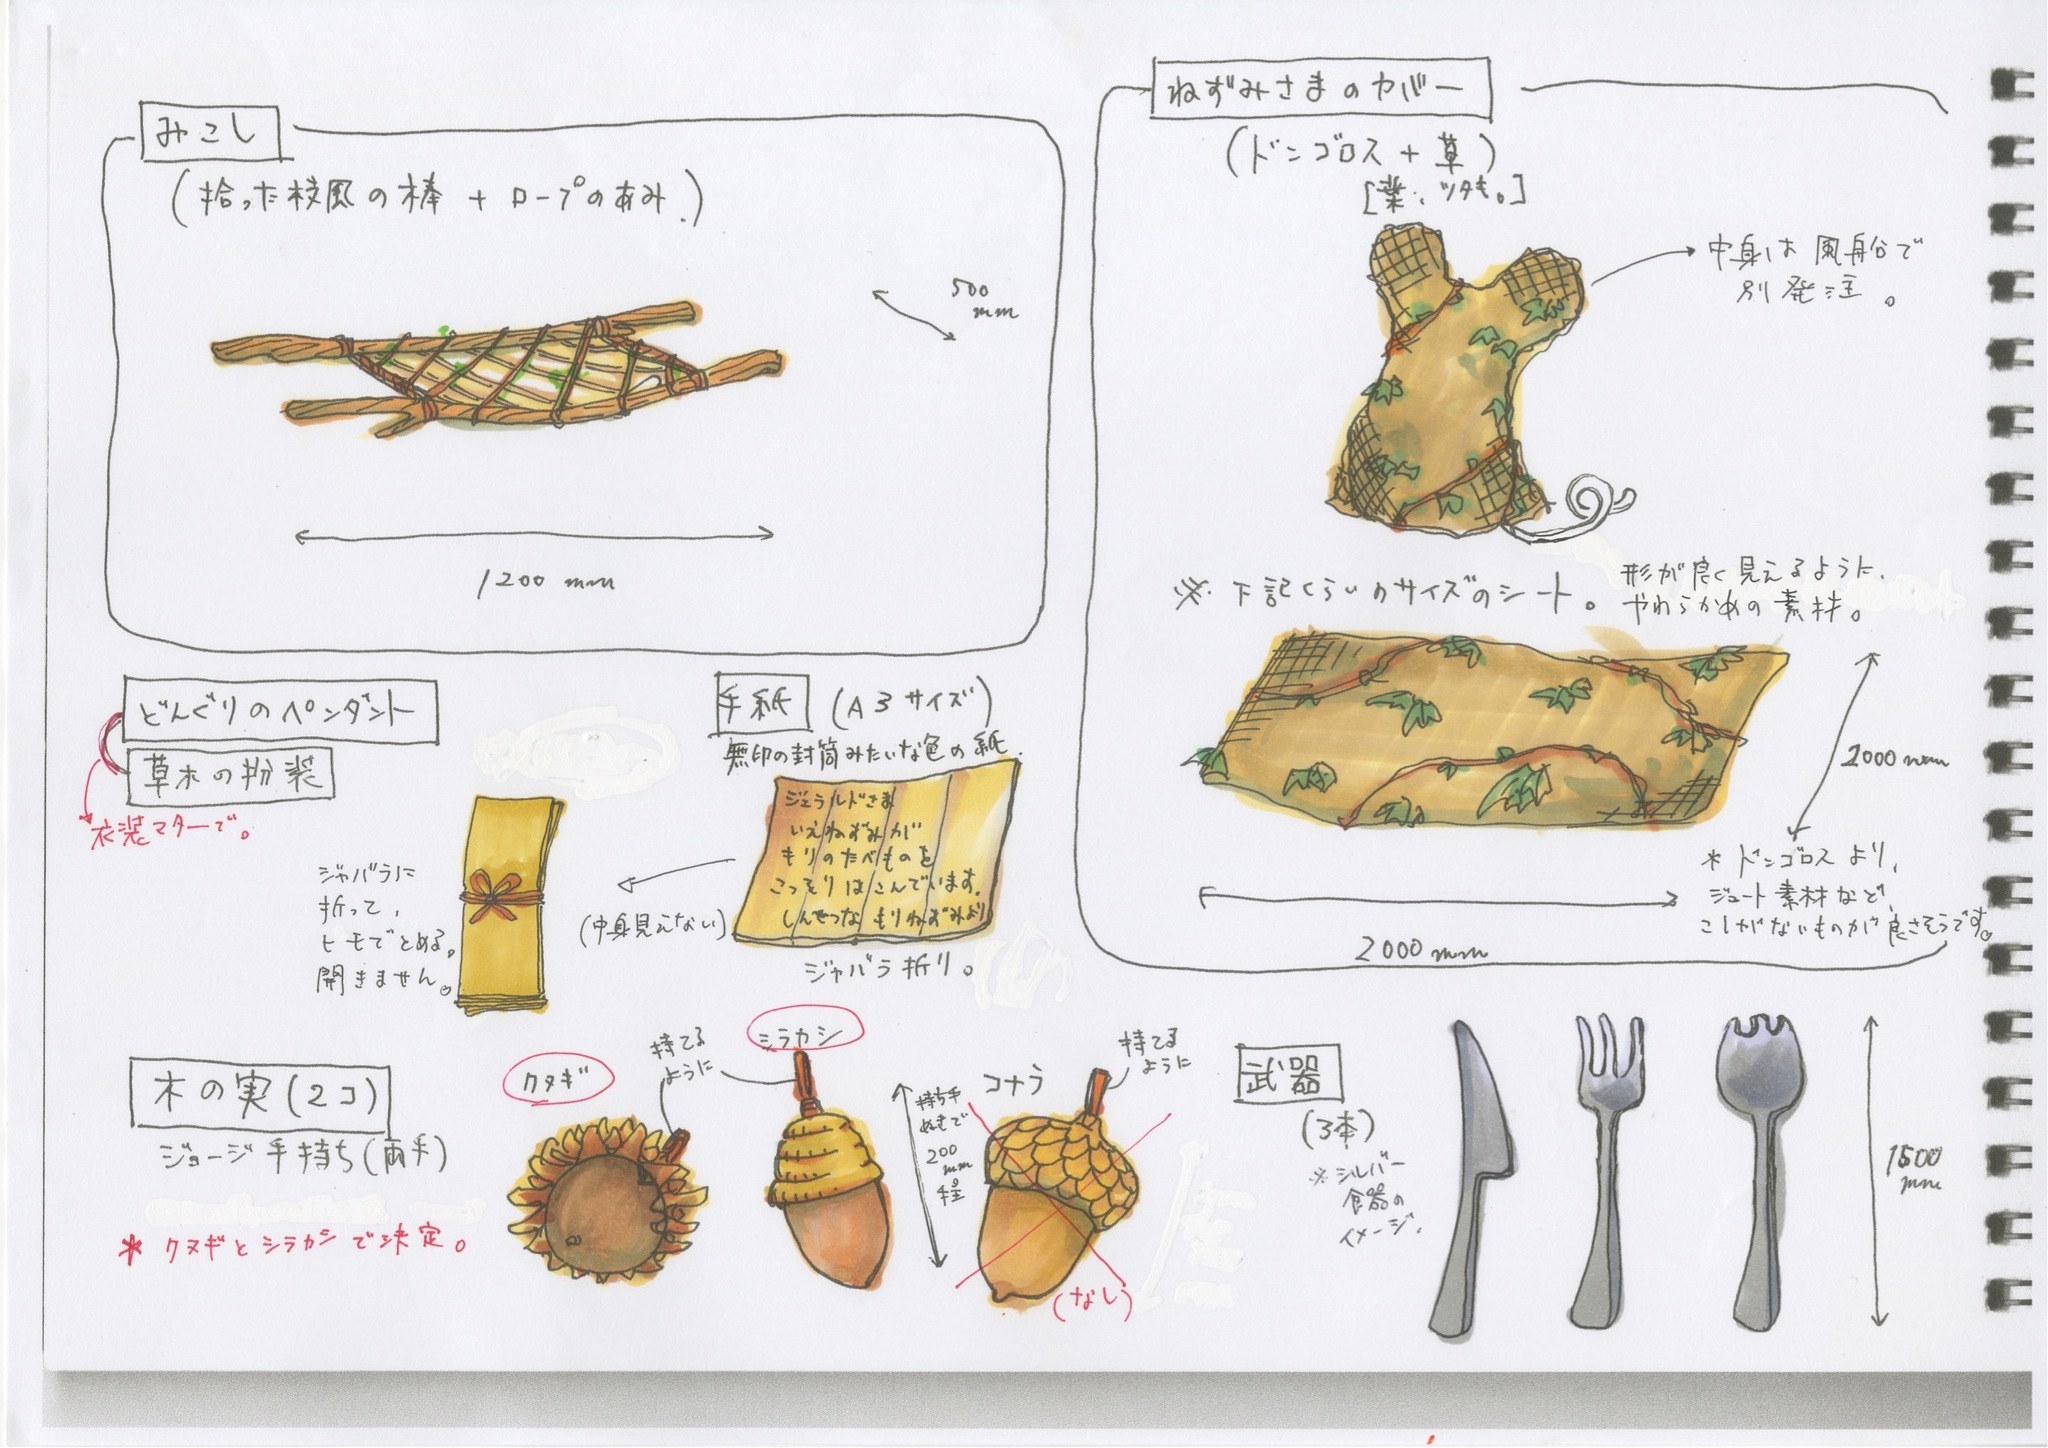 みこし
(拾った枝風の棒 + ロープのあみ.)
500
mm
1200 mm
ねずみさまのカバー
(ドンゴロス + 草)
[葉、ツタも。]
中身は風船で
別発注。
※ 下記くらいのサイズのシート。
形が良く見えるように、
やわらかめの素材。
2000mm
2000mm
* ドンゴロスより、
ジュート素材など、
こしがないものが良さそうです。
どんぐりのペンダント
草木の扮装
衣装マターで。
手紙 (A3サイズ)
無印の封筒みたいな色の紙.
ジェラルドさま
いえねずみが
もりのたべものを
こっそりはこんでいます.
しんせつな もりねずみより
ジャバラ折り。
(中身見えない)
ジャバラに
折って、
ヒモでとめる。
開きません。
木の実(2コ)
ジョージ手持ち(両手)
* クヌギとシラカシで決定。
クヌギ
持てる
ように
シラカシ
持ち手
ぬきで
200
mm
程
コナラ
持てる
ように
(なし)
武器
(3本)
※シルバー
食器の
イメージ.
1500
mm